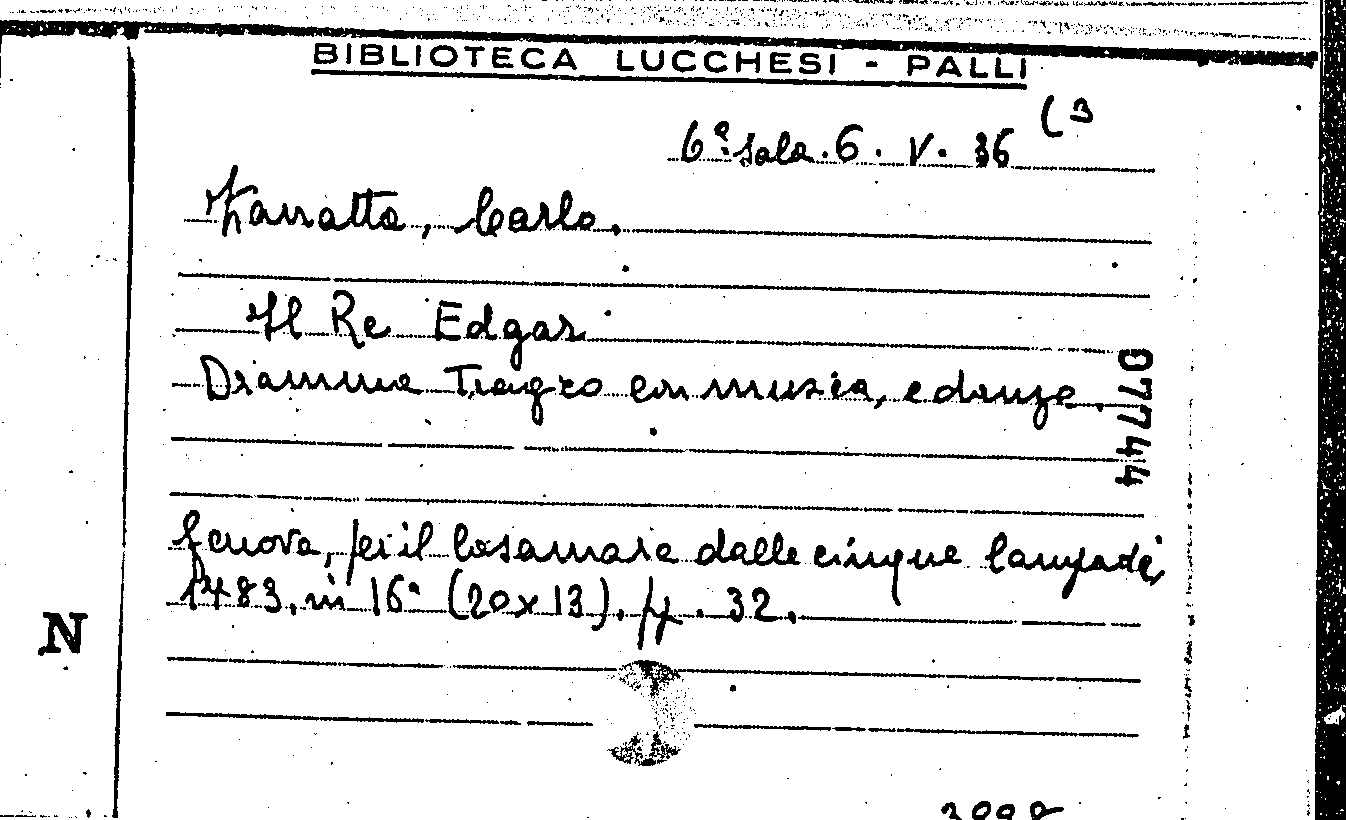 BIBLIOTECA LUCCHESI - PALLI
(3
6ª Sala. 6. V. 36
Zanatta, Carlo.
Il Re Edgar
Dramma Tragico con musica, e danze.
D7744
Genova, per il Casamara dalle cinque lampade,
1483, in 16° (20x13). pp. 32.
N